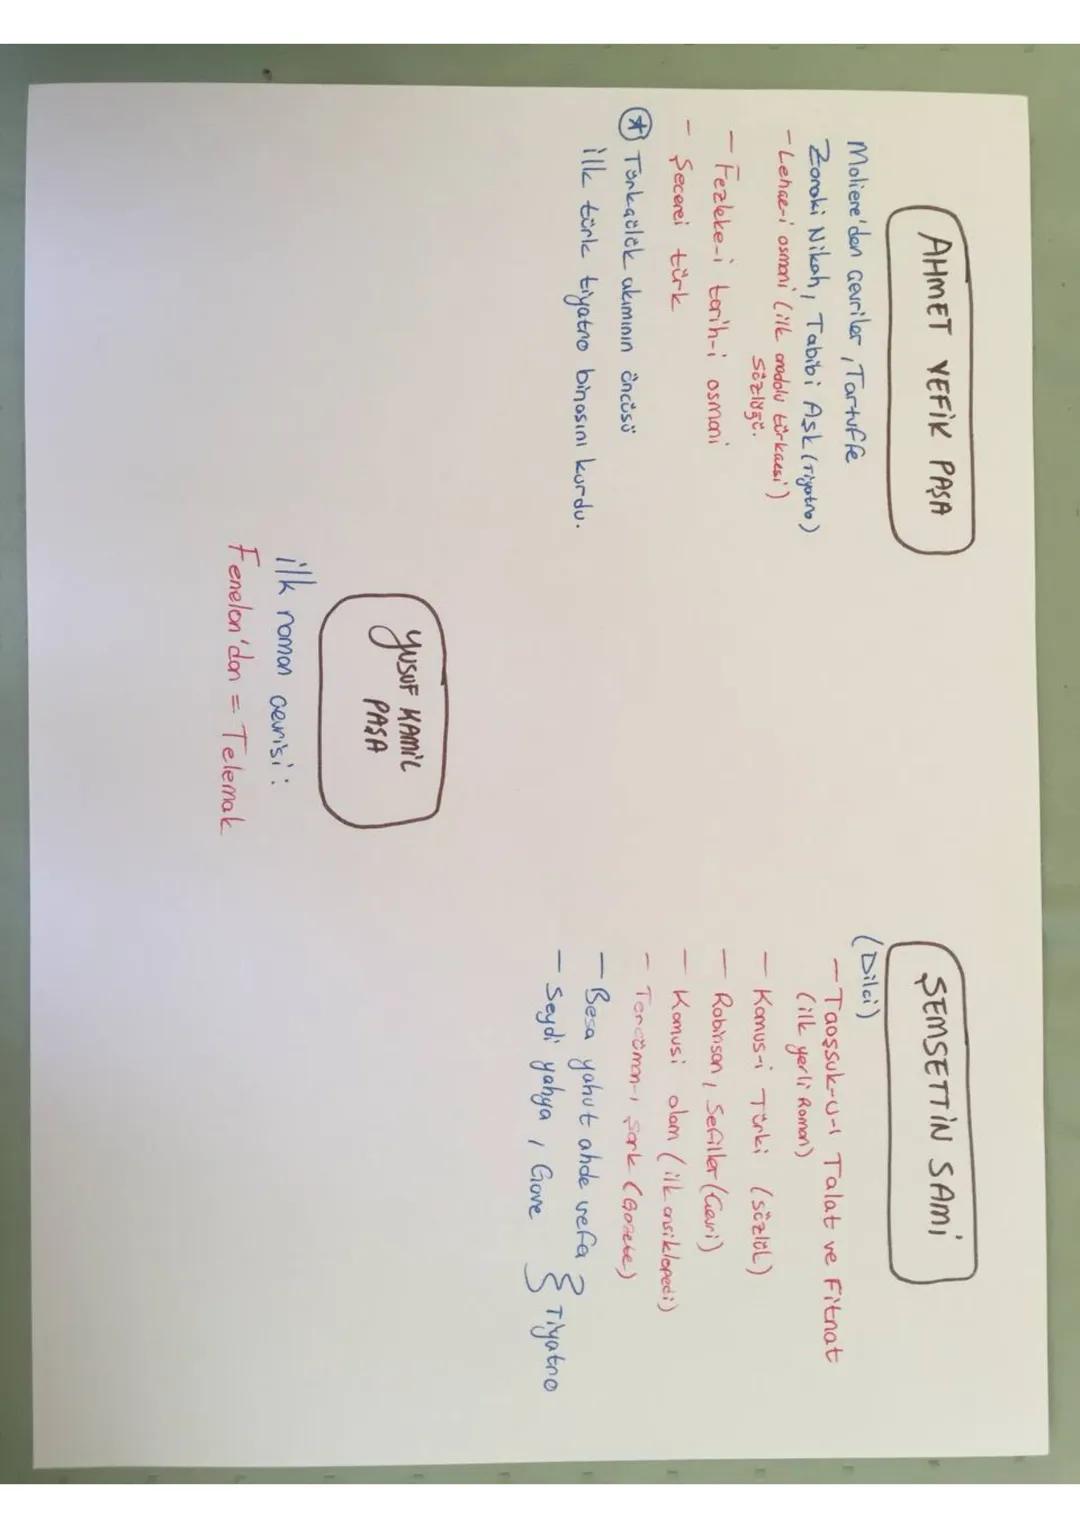 AHMET VEFİK PAŞA
Moliere'den çevriler, Tartuffe
Zoraki Nikah, Tabibi Aşk (Tiyatro)
- Lehçe-i osmani (ilk anadolu türkçesi)
sözlüğü.
- Fezleke-i tarih-i osmani
- Şecerei türk
* Türkçülük akımının öncüsü
ilk türk tiyatro binasını kurdu.
YUSUF KAMİL
PAŞA
ilk roman çevrisi:
Fenelon'dan = Telemak
ŞEMSETTİN SAMİ
(Dilci)
- Taaşşuk-u-ı Talat ve Fitnat
(ilk yerli Roman)
- Kamus-i Türki (sözlük)
- Robinson, Sefiller (Çevri)
- Kamusi alam (ilk ansiklopedi)
- Tercüman-ı Şark (Gazete)
- Besa yahut ahde vefa
- Seydi yahya, Gave } Tiyatro